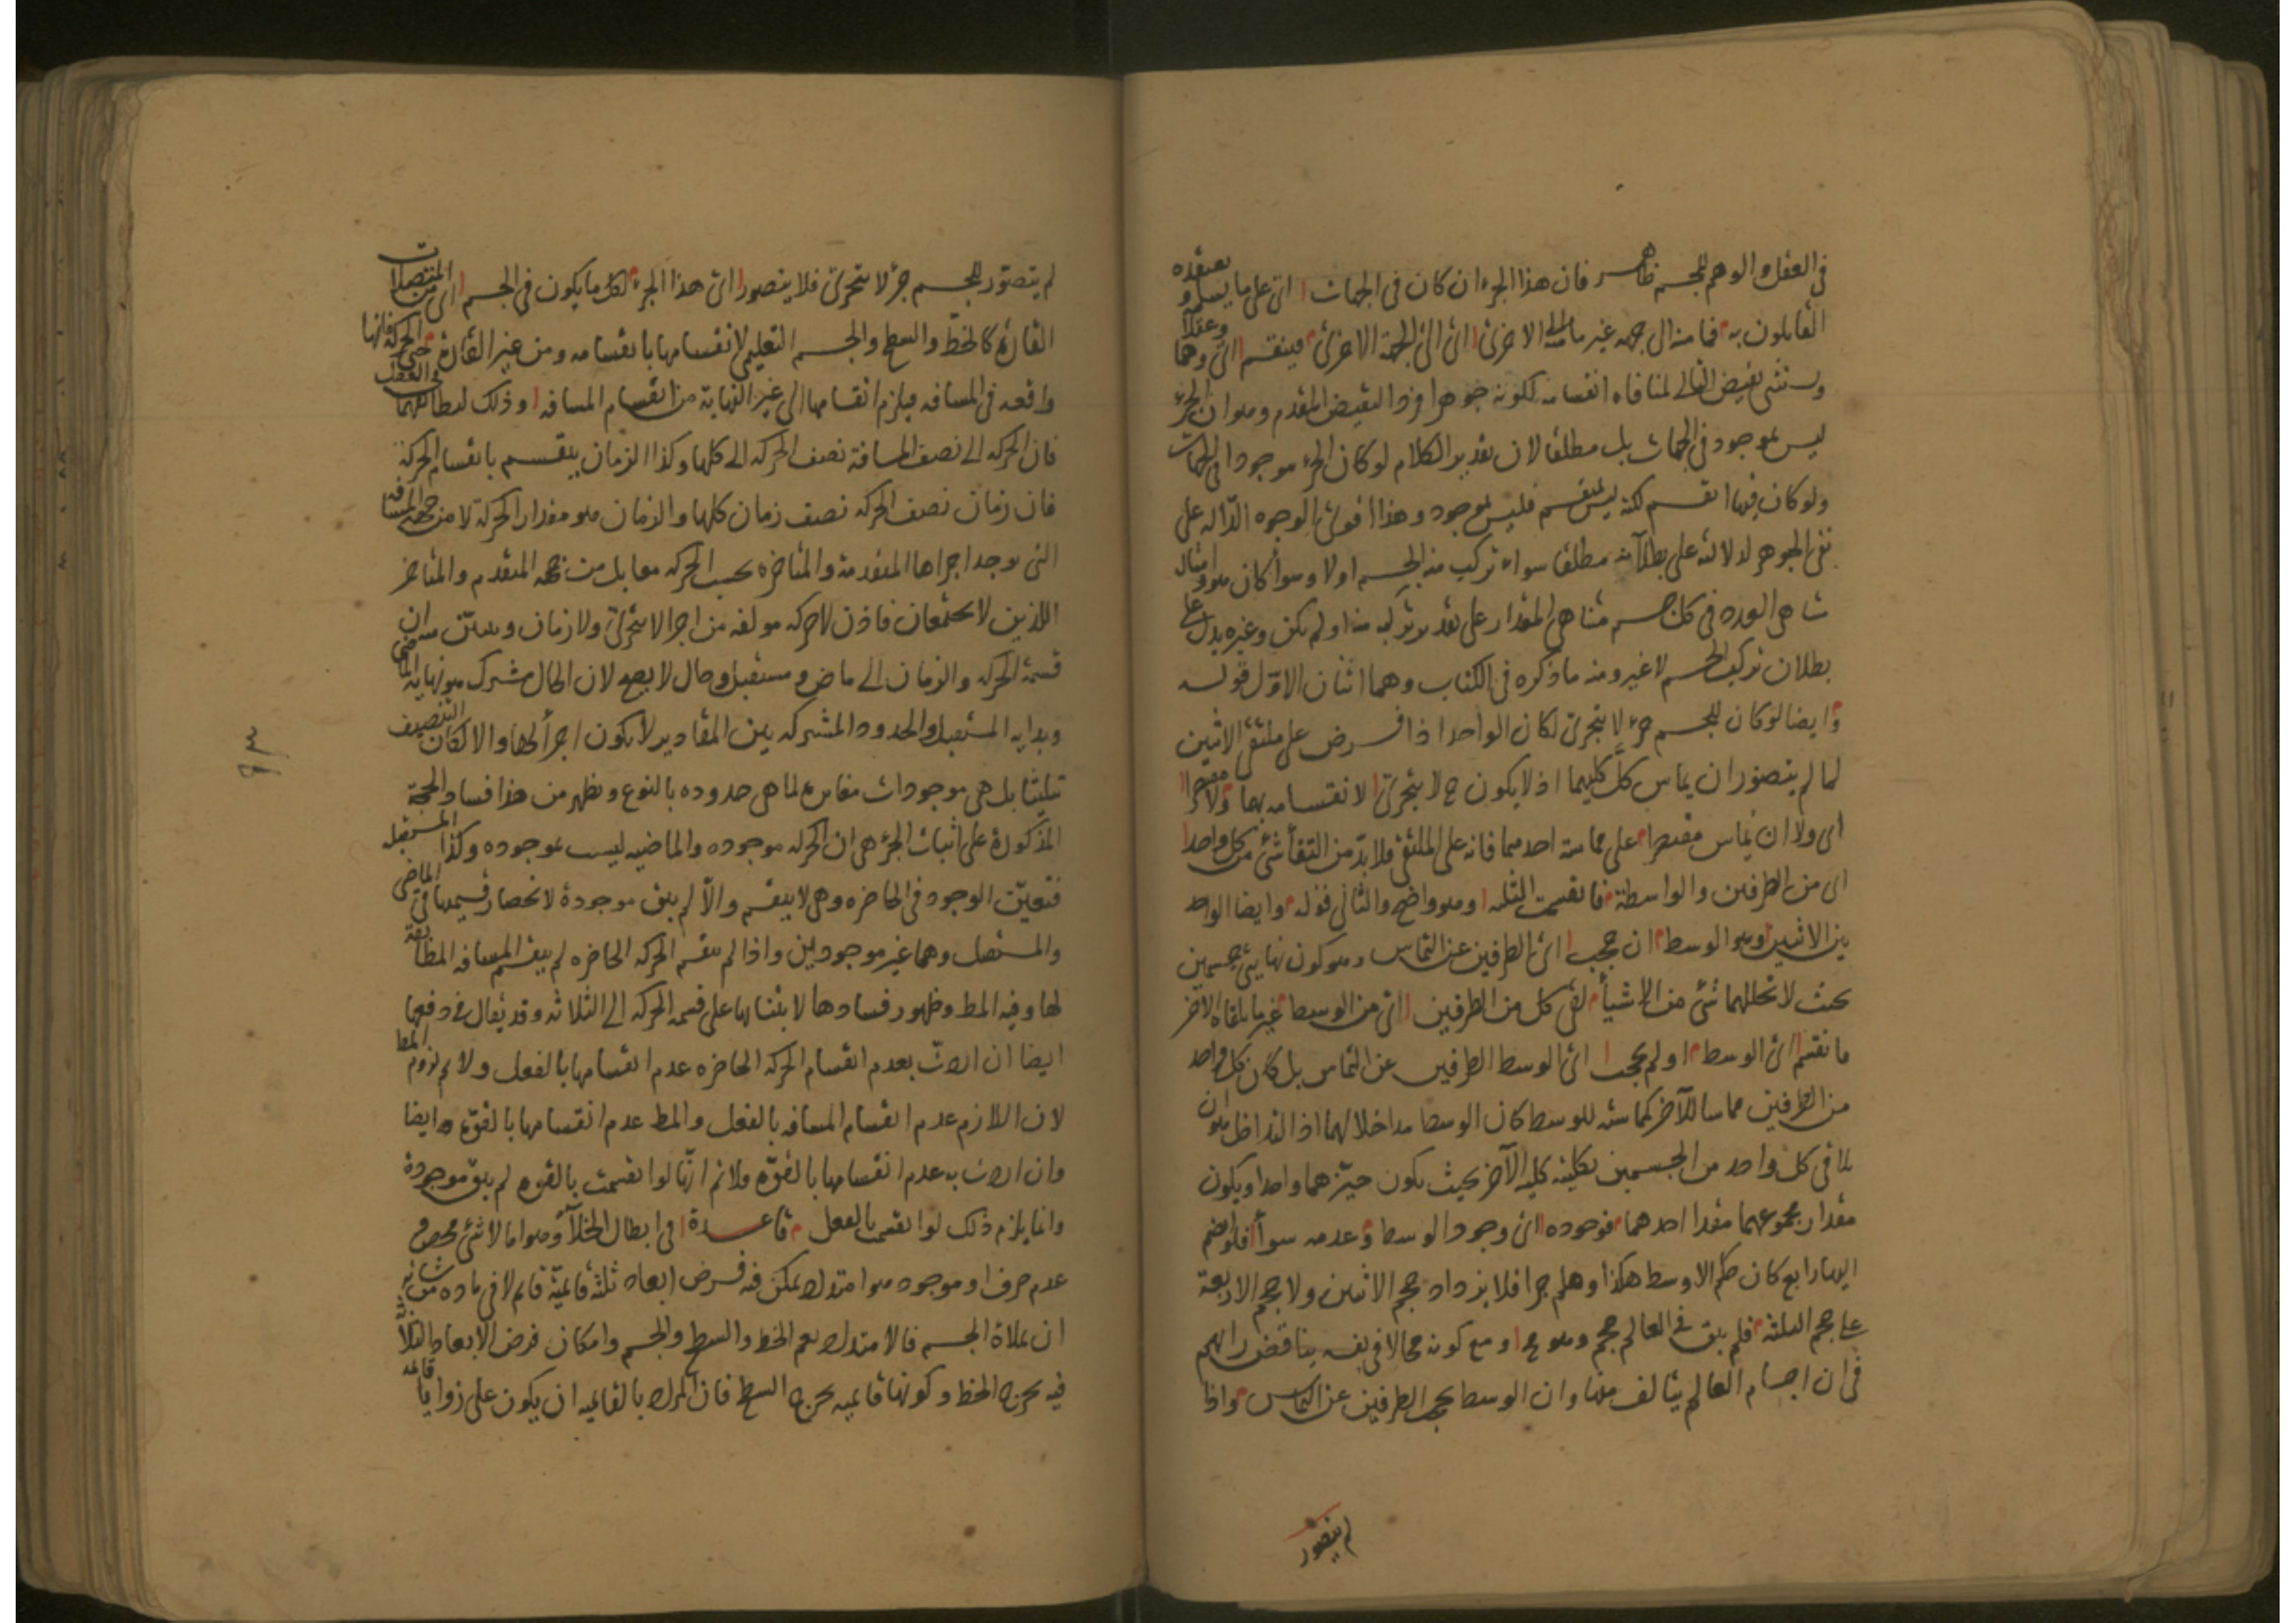 في العقل والوهم للجسم ظاهر فان هذا الجزء ان كان في الجهات اى على ما يسلم و يعتقده
القايلون به فما منه الى جهه غير ما منه الى الاخرى اى الى الجهة الاخرى فينقسم اى وهما وعقلا
ويستثنى نقيض التالى لمنافاه انقسامه لكونه جوهرا فردا لنقيض المقدم وهو ان الجزء
ليس بموجود في الجهات بل مطلقا لان تقدير الكلام لو كان الجزء موجودا فى الجهات
ولو كان فيها انقسم لكنه ليس بمنقسم فليس بموجود وهذا اقوى الوجوه الدّاله على
نفى الجوهر لدلالته على بطلانه مطلقا سواء تركب منه الجسم اولا وسوا كان هو و امثاله
متناهى العدد فى كل جسم متناهى المقدار على تقدير تركبه منه اولم يكن وغيره يدل على
بطلان تركب الجسم لا غير ومنه ما ذكره فى الكتاب وهما اثنان الاوّل قوله
وايضا لو كان للجسم جزء لا يتجزى لكان الواحد اذا فرض على ملتقى الاثنين
لما لم يتصور ان يماس كلّ كليهما اذ لا يكون ح لا يتجزى لانقسامه بهما ولا مقتصرا
اى ولا ان يماس مقتصرا على مماسة احدهما فانه على الملتقى فلا بدّ من التقا شئ من كل واحد
اى من الطرفين والواسطة فانقسمت الثلثه وهو واضح والثانى قوله وايضا الواحد
بين الاثنين وهو الوسط ان حجب اى الطرفين عن التماس وهو كون نهايتى جسمين
بحيث لا تخللهما شئ من الاشيأ لقى كل من الطرفين اى من الوسط غير ما يلقاه الاخر
فانقسم اى الوسط اولم يحجب اى الوسط الطرفين عن التماس بل كان كل واحد
من الطرفين مماسا للآخر كماسته للوسط كان الوسط مداخلا لهما اذ التداخل هو ان
يلاقى كل واحد من الجسمين بكليته كليه الآخر بحيث يكون حيّزهما واحدا ويكون
مقدار مجموعهما مقدار احدهما فوجوده اى وجود الوسط وعدمه سوأ فلو ضم
اليها رابع كان حكم الاوسط هكذا وهلم جرا فلا يزداد حجم الاثنين ولا حجم الاربعة
على حجم الثلثه فلم يبق فى العالم حجم وهو مح ومع كونه محالا فى نفسه يناقض رايهم
فى ان اجسام العالم يتالف منها وان الوسط يحجب الطرفين عن التماس واذا
لم يتصور
لم يتصوّر للجسم جزء لا يتجزى فلا يتصور اى هذا الجزء لكل ما يكون فى الجسم اى من المتصلات
القارّة كالخطّ والسطح والجسم التعليمى لانقسامها بانقسامه ومن غير القارة حتى الحركة فانها
واقعه فى المسافه فيلزم انقسامها الى غير النهاية من انقسام المسافه وذلك لتطابقهما فى العقل
فان الحركه الى نصف المسافة نصف الحركه الى كلها وكذا الزمان ينقسم بانقسام الحركة
فان زمان نصف الحركه نصف زمان كلها والزمان هو مقدار الحركة لا من جهة المسافه
التى يوجد اجزاها المتقدمة والمتاخره بحسب الحركه معا بل من جهه المتقدم والمتاخر
اللذين لا يجتمعان فاذن لا حركه مولفه من اجزا لا تتجزى ولا زمان ويتبيّن منه ان
قسمة الحركه والزمان الى ماض ومستقبل وحال لا يصح لان الحال مشترك هو نهايه الماضى
وبدايه المستقبل والحدود المشتركه بين المقادير لا يكون اجزأ لها والا لكان التنصيف
تثليثا بل هى موجودات مغايرة لما هى حدوده بالنوع ويظهر من هذا فساد الحجة
المذكورة على اثبات الجزء هى ان الحركه موجوده والماضيه ليست بموجوده وكذا المستقبله
فتعيّن الوجود فى الحاضره وهى لا ينقسم والّا لم يبق موجودة لانحصار قسيمها فى الماضى
والمستقبل وهما غير موجودين واذا لم ينقسم الحركه الحاضره لم ينقسم المسافه المطابقة
لها وفيه المط وظهور فسادها لابتنائها على قسمه الحركه الى الثلاثه وقد يقال فى دفعها
ايضا ان اردت بعدم انقسام الحركه الحاضره عدم انقسامها بالفعل ولا لم لزوم المط
لان اللازم عدم انقسام المسافه بالفعل والمط عدم انقسامها بالقوة وايضا
وان اردت به عدم انقسامها بالقوّه فلانم انّها لو انقسمت بالقوه لم يبق موجودة
وانما يلزم ذلك لو انقسمت بالفعل قاعدة فى ابطال الخلأ وهو اما لا شئ محض و
عدم صرف او موجود هو امتداد يمكن فيه فرض ابعاد ثلثه قائمة قايم لا فى ماده من شانه
ان يملاه الجسم فالامتداد يعم الخط والسطح والجسم وامكان فرض الابعاد الثلاثة
فيه يخرج الخط وكونها قايمه يخرج السطح فان المراد بالقايمه ان يكون على زوايا قايمه
٩٣